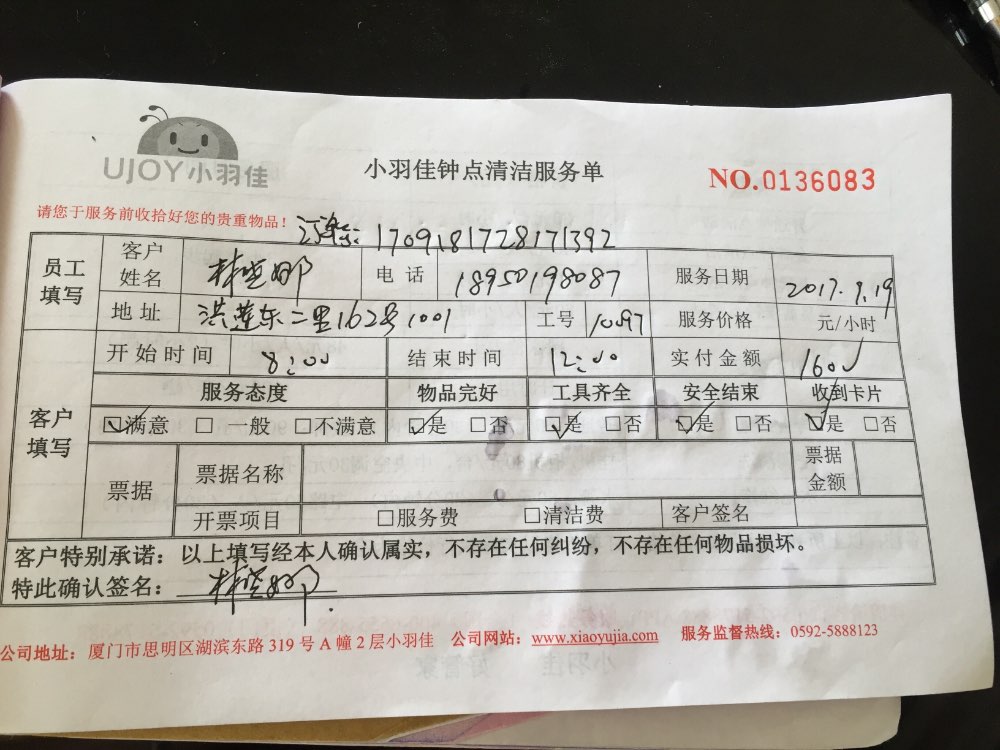 UJOY小羽佳
小羽佳钟点清洁服务单
NO.0136083
请您于服务前收拾好您的贵重物品！
1709181728171392
员工填写 客户姓名 电话 18950198087 服务日期 2017.9.19
地址 洪莲东二里162号1001 工号 10097 服务价格 元/小时
客户填写 开始时间 8:00 结束时间 12:00 实付金额
服务态度 物品完好 工具齐全 安全结束 收到卡片
☑满意 □一般 □不满意 ☑是 □否 ☑是 □否 ☑是 □否 ☑是 □否
票据 票据名称 票据金额
开票项目 □服务费 □清洁费 客户签名
客户特别承诺：以上填写经本人确认属实，不存在任何纠纷，不存在任何物品损坏。
特此确认签名：
公司地址：厦门市思明区湖滨东路 319 号 A 幢 2 层小羽佳 公司网站：www.xiaoyujia.com 服务监督热线：0592-5888123